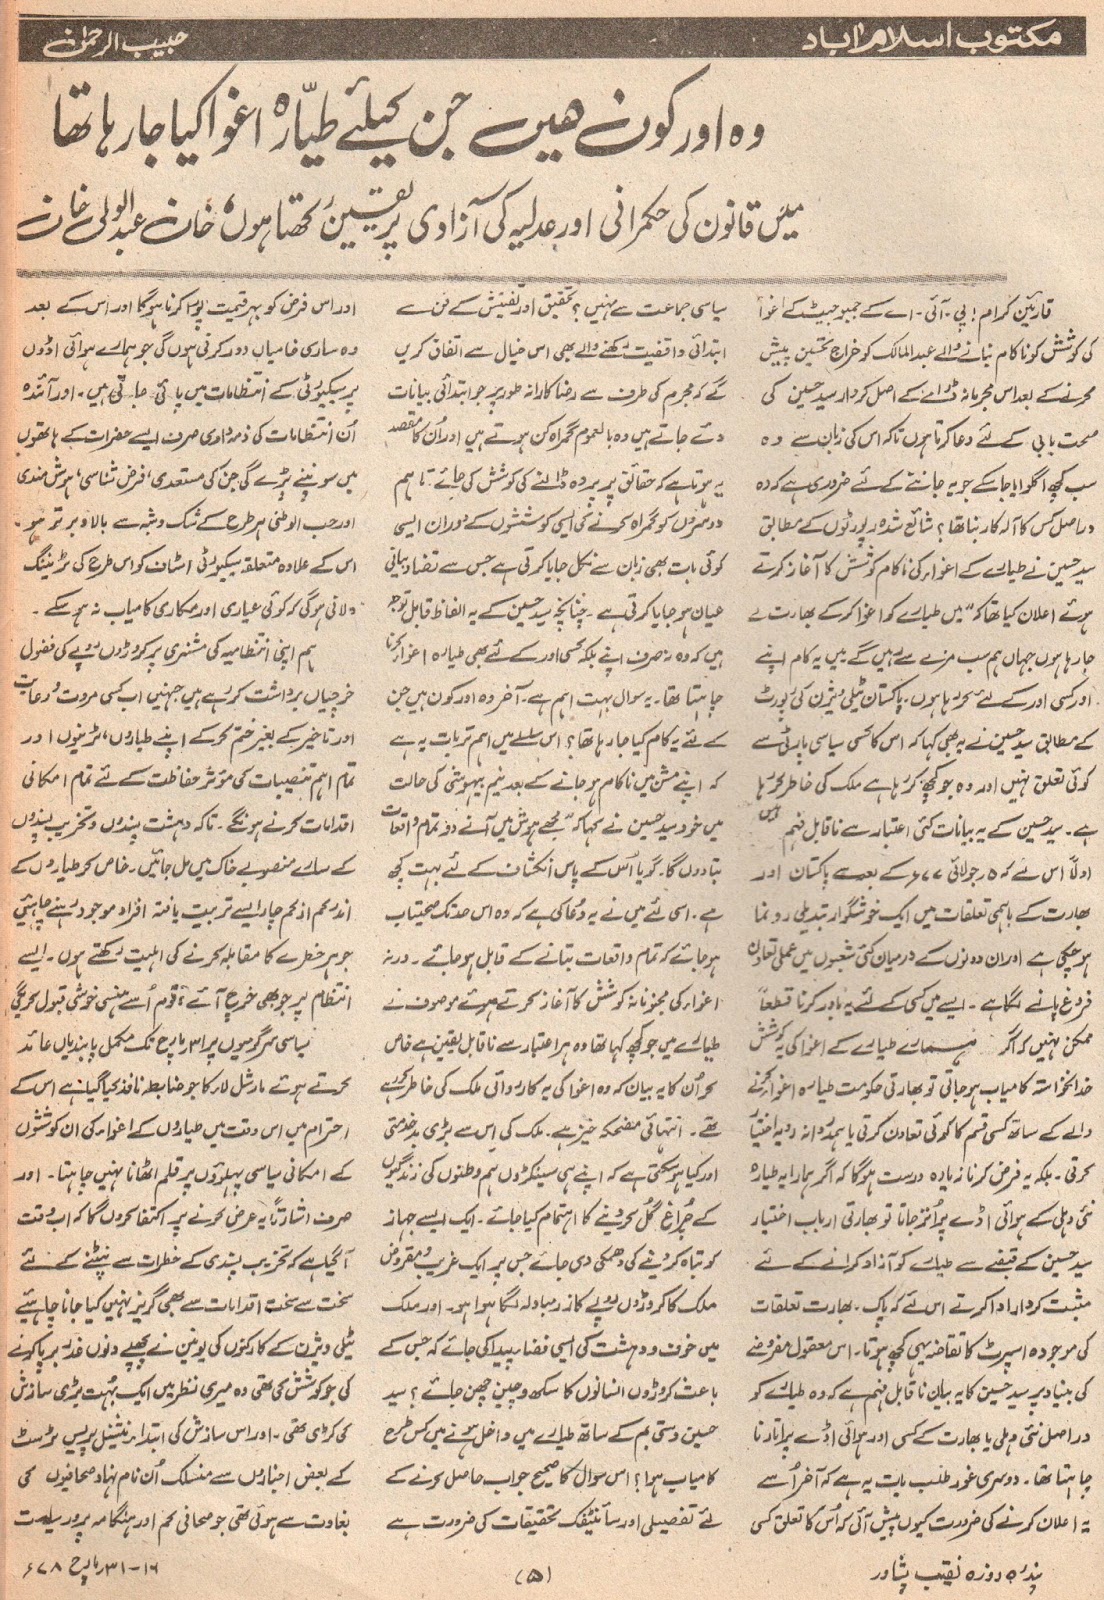 مکتوب اسلام آباد
حبیب الرحمٰن
وہ اور کون ہیں جن کیلئے طیّارہ اغوا کیا جا رہا تھا
میں قانون کی حکمرانی اور عدلیہ کی آزادی پر یقین رکھتا ہوں، خان عبدالولی خان
قارئین کرام! پی۔ آئی۔ اے کے جمبو جیٹ کے اغوا
کی کوشش کو ناکام بنانے والے عبدالمالک کو خراج تحسین پیش
کرنے کے بعد اس مجرمانہ ڈرامے کے اصل کردار سید حسین کی
صحت یابی کے لئے دعا کرتا ہوں تاکہ اس کی زبان سے وہ
سب کچھ اگلوایا جا سکے جو یہ جاننے کے لئے ضروری ہے کہ وہ
دراصل کس کا آلہ کار بنا تھا؟ شائع شدہ رپورٹوں کے مطابق
سید حسین نے طیارے کے اغواء کی ناکام کوشش کا آغاز کرتے
ہوئے اعلان کیا تھا کہ "میں طیارے کو اغوا کر کے بھارت لے
جا رہا ہوں جہاں ہم سب مزے سے رہیں گے میں یہ کام اپنے
اور کسی اور کے لئے کر رہا ہوں۔ پاکستان ٹیلی ویژن کی رپورٹ
کے مطابق سید حسین نے یہ بھی کہا کہ اس کا کسی سیاسی پارٹی سے
کوئی تعلق نہیں اور وہ جو کچھ کر رہا ہے ملک کی خاطر کر رہا
ہے۔ سید حسین کے یہ بیانات کئی اعتبار سے ناقابل فہم ہیں
اولاً اس لئے کہ ۵ رجولائی ۷۷ء کے بعد سے پاکستان اور
بھارت کے باہمی تعلقات میں ایک خوشگوار تبدیلی رونما
ہو چکی ہے اور ان دونوں کے درمیان کئی شعبوں میں عملی تعاون
فروغ پانے لگا ہے۔ ایسے میں کسی کے لئے یہ باور کرنا قطعاً
ممکن نہیں کہ اگر ہمارے طیارے کے اغوا کی یہ کوشش
خدانخواستہ کامیاب ہو جاتی تو بھارتی حکومت طیارہ اغوا کرنے
والے کے ساتھ کسی قسم کا کوئی تعاون کرتی یا ہمدردانہ رویہ اختیار
کرتی۔ بلکہ یہ فرض کرنا زیادہ درست ہو گا کہ اگر ہمارا یہ طیارہ
نئی دہلی کے ہوائی اڈے پر اتر جاتا تو بھارتی ارباب اختیار
سید حسین کے قبضے سے طیارے کو آزاد کرانے کے لئے
مثبت کردار ادا کرتے اس لئے کہ پاک۔ بھارت تعلقات
کی موجودہ اسپرٹ کا تقاضہ یہی کچھ ہوتا۔ اس معقول مفروضے
کی بنیاد پر سید حسین کا یہ بیان ناقابل فہم ہے کہ وہ طیارے کو
دراصل نئی دہلی یا بھارت کے کسی اور ہوائی اڈے پر اتارنا
چاہتا تھا۔ دوسری غور طلب بات یہ ہے کہ آخر اُسے
یہ اعلان کرنے کی ضرورت کیوں پیش آئی کہ اُس کا تعلق کسی
سیاسی جماعت سے نہیں؟ تحقیق اور تفتیش کے فن سے
ابتدائی واقفیت رکھنے والے بھی اس خیال سے اتفاق کریں
گے کہ مجرم کی طرف سے رضاکارانہ طور پر جو ابتدائی بیانات
دئے جاتے ہیں وہ بالعموم گمراہ کن ہوتے ہیں اور اُن کا مقصد
یہ ہوتا ہے کہ حقائق پر پردہ ڈالنے کی کوشش کی جائے تاہم
دوسروں کو گمراہ کرنے کی ایسی کوششوں کے دوران ایسی
کوئی بات بھی زبان سے نکل جایا کرتی ہے جس سے تضاد بیانی
عیاں ہو جایا کرتی ہے۔ چنانچہ سید حسین کے یہ الفاظ قابل توجہ
ہیں کہ وہ نہ صرف اپنے بلکہ کسی اور کے لئے بھی طیارہ اغوا کرنا
چاہتا تھا۔ یہ سوال بہت اہم ہے۔ آخر وہ اور کون ہیں جن
کے لئے یہ کام کیا جا رہا تھا؟ اس سلسلے میں اہم تر بات یہ ہے
کہ اپنے مشن میں ناکام ہو جانے کے بعد نیم بیہوشی کی حالت
میں خود سید حسین نے کہا کہ "مجھے ہوش میں آنے دو تمام واقعات
بتا دوں گا۔ گویا اُس کے پاس انکشاف کے لئے بہت کچھ
ہے۔ اسی لئے میں نے یہ دُعا کی ہے کہ وہ اس حد تک صحتیاب
ہو جائے کہ تمام واقعات بتانے کے قابل ہو جائے۔ ورنہ
اغواء کی مجنونانہ کوشش کا آغاز کرتے ہوئے موصوف نے
طیارے میں جو کچھ کہا تھا وہ ہر اعتبار سے ناقابل یقین ہے خاص
کر اُن کا یہ بیان کہ وہ اغوا کی یہ کاروائی ملک کی خاطر کر رہے
تھے۔ انتہائی مضحکہ خیز ہے۔ ملک کی اس سے بڑی بدخدمتی
اور کیا ہو سکتی ہے کہ اپنے ہی سینکڑوں ہم وطنوں کی زندگیوں
کے چراغ گُل کر دینے کا اہتمام کیا جائے۔ ایک ایسے جہاز
کو تباہ کر دینے کی دھمکی دی جائے جس پر ایک غریب و مقروض
ملک کا کروڑوں روپے کا زرمبادلہ لگا ہوا ہو۔ اور ملک
میں خوف و دہشت کی ایسی فضا پیدا کی جائے کہ جس کے
باعث کروڑوں انسانوں کا سکھ و چین چھن جائے؟ سید
حسین دستی بم کے ساتھ طیارے میں داخل ہونے میں کس طرح
کامیاب ہوا؟ اس سوال کا صحیح جواب حاصل کرنے کے
لئے تفصیلی اور سائنٹیفک تحقیقات کی ضرورت ہے
اور اس فرض کو بہر قیمت پورا کرنا ہو گا اور اس کے بعد
وہ ساری خامیاں دور کرنی ہوں گی جو ہمارے ہوائی اڈوں
پر سیکیورٹی کے انتظامات میں پائی جاتی ہیں۔ اور آئندہ
اُن انتظامات کی ذمہ داری صرف ایسے حضرات کے ہاتھوں
میں سونپنے پڑے گی جن کی مستعدی، فرض شناسی، ہوش مندی
اور حب الوطنی ہر طرح کے شک و شبہ سے بالا و برتر ہو۔
اس کے علاوہ متعلقہ سیکیورٹی اسٹاف کو اس طرح کی ٹریننگ
دلانی ہو گی کہ کوئی عیاری اور مکاری کامیاب نہ ہو سکے۔
ہم اپنی انتظامیہ کی مشنری پر کروڑوں روپے کی فضول
خرچیاں برداشت کر رہے ہیں جنہیں اب کسی مروت و رعایت
اور تاخیر کے بغیر ختم کر کے اپنے طیاروں، ٹرینوں اور
تمام اہم تنصیبات کی مؤثر حفاظت کے لئے تمام امکانی
اقدامات کرنے ہونگے۔ تاکہ دہشت پسندوں و تخریب پسندوں
کے سارے منصوبے خاک میں مل جائیں۔ خاص کر طیاروں کے
اندر کم از کم چار ایسے تربیت یافتہ افراد موجود رہنے چاہئیں
جو ہر خطرے کا مقابلہ کرنے کی اہلیت رکھتے ہوں۔ ایسے
انتظام پر جو بھی خرچ آئے، قوم اُسے ہنسی خوشی قبول کریگی
سیاسی سرگرمیوں پر ۳۱ مارچ تک مکمل پابندیاں عائد
کرتے ہوئے مارشل لاء کا جو ضابطہ نافذ کیا گیا ہے اس کے
احترام میں اس وقت میں طیاروں کے اغواء کی ان کوششوں
کے امکانی سیاسی پہلوؤں پر قلم اٹھانا نہیں چاہتا۔ اور
صرف اشارتاً یہ عرض کرنے پر اکتفا کروں گا کہ اب وقت
آ گیا ہے کہ تخریب پسندی کے خطرات سے نپٹنے کے لئے
سخت سے سخت اقدامات سے بھی گریز نہیں کیا جانا چاہئیے
ٹیلی ویژن کے کارکنوں کی یونین نے پچھلے دنوں غدر برپا کرنے
کی جو کوشش کی تھی وہ میری نظر میں ایک بہت بڑی سازش
کی کڑی تھی۔ اور اس سازش کی ابتداء نیشنل پریس ٹرسٹ
کے بعض اخباروں سے منسلک اُن نام نہاد صحافیوں کی
بغاوت سے ہوئی تھی جو صحافی کم اور ہنگامہ پرور سیاست
پندرہ روزہ نقیب پشاور
(۵)
۱۶–۳۱ مارچ ۷۸ء